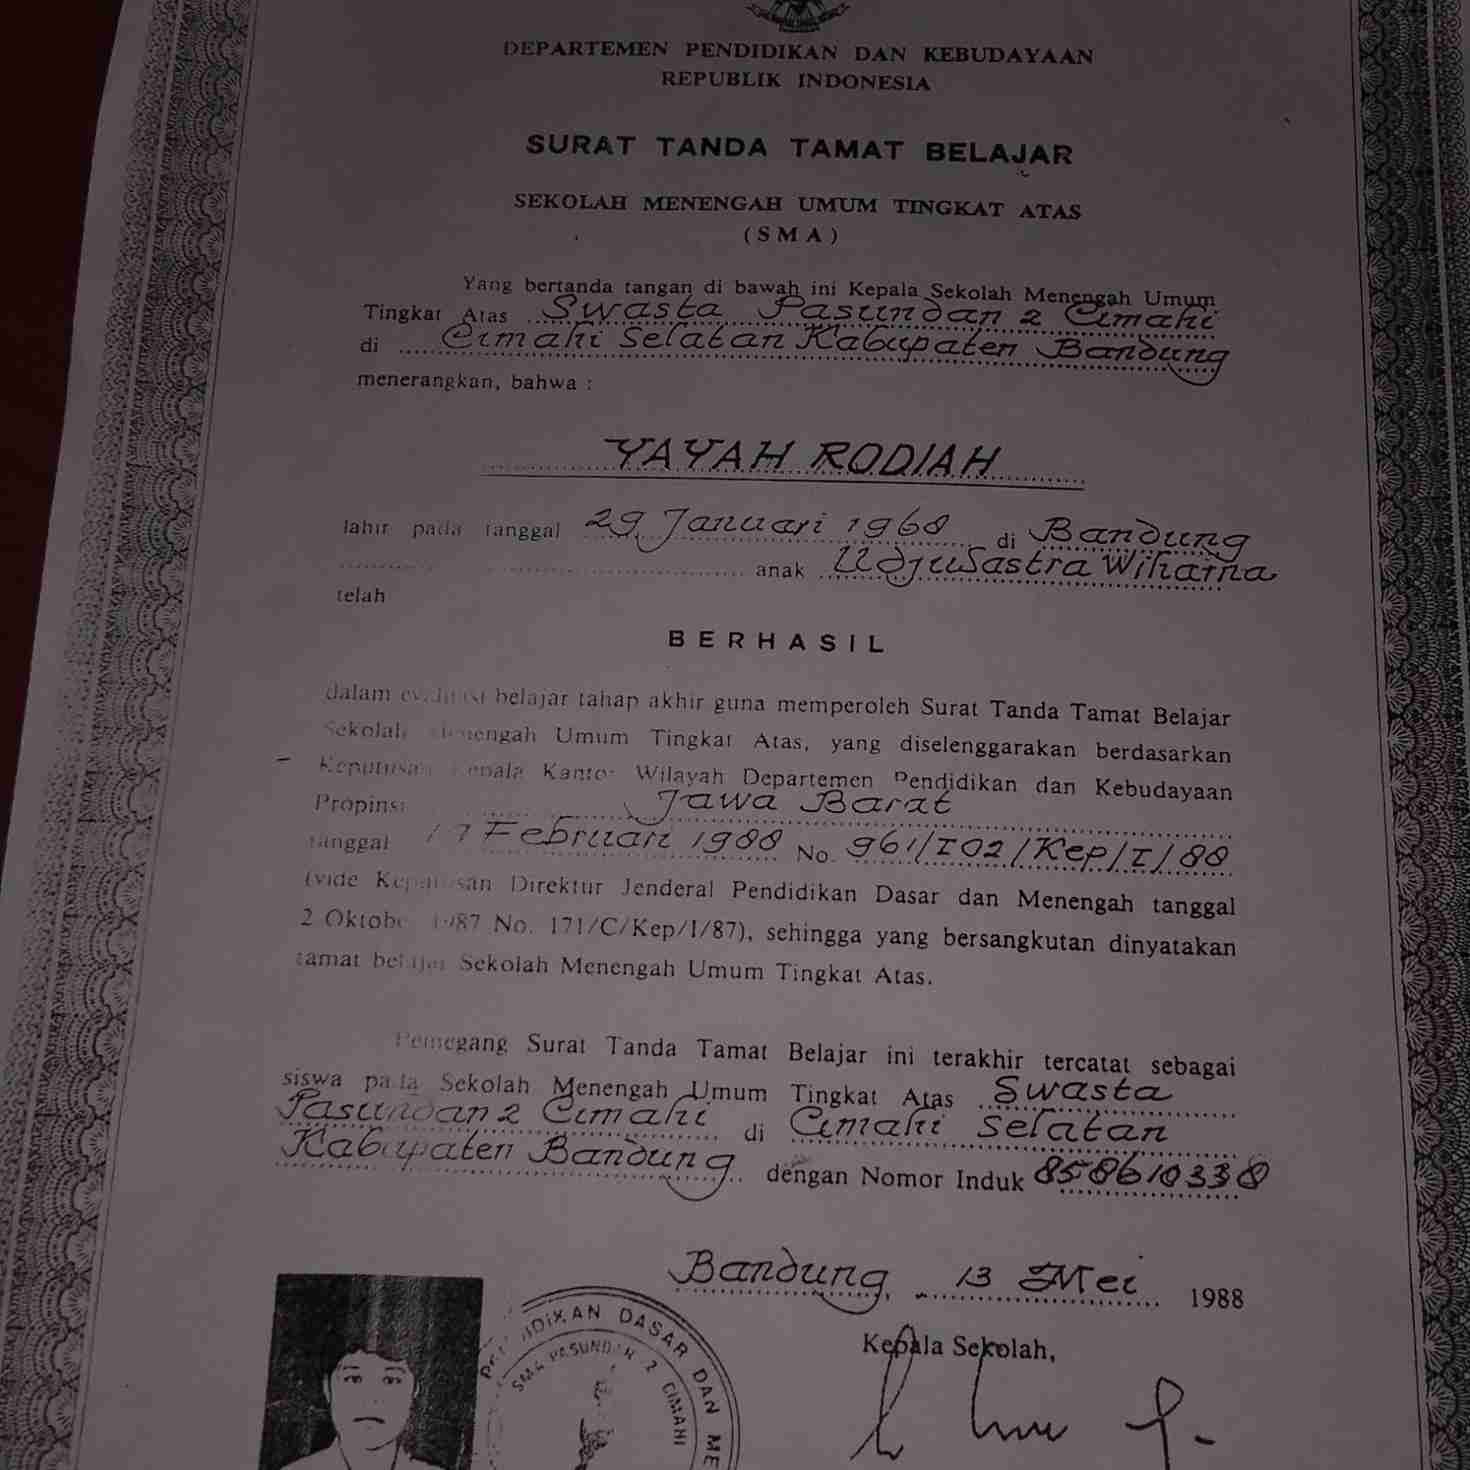 DEPARTEMEN PENDIDIKAN DAN KEBUDAYAAN
REPUBLIK INDONESIA
SURAT TANDA TAMAT BELAJAR
SEKOLAH MENENGAH UMUM TINGKAT ATAS
(SMA)
Yang bertanda tangan di bawah ini Kepala Sekolah Menengah Umum
Tingkat Atas Swasta Pasundan 2 Cimahi
di Cimahi Selatan Kabupaten Bandung
menerangkan, bahwa :
YAYAH RODIAH
lahir pada tanggal 29 Januari 1968 di Bandung
anak Udju Sastra Wiharna
telah
BERHASIL
dalam evaluasi belajar tahap akhir guna memperoleh Surat Tanda Tamat Belajar
Sekolah Menengah Umum Tingkat Atas, yang diselenggarakan berdasarkan
Keputusan Kepala Kantor Wilayah Departemen Pendidikan dan Kebudayaan
Propinsi Jawa Barat
tanggal 17 Februari 1988 No. 961/I02/Kep/I/88
(vide Keputusan Direktur Jenderal Pendidikan Dasar dan Menengah tanggal
2 Oktober 1987 No. 171/C/Kep/I/87), sehingga yang bersangkutan dinyatakan
tamat belajar Sekolah Menengah Umum Tingkat Atas.
Pemegang Surat Tanda Tamat Belajar ini terakhir tercatat sebagai
siswa pada Sekolah Menengah Umum Tingkat Atas Swasta
Pasundan 2 Cimahi di Cimahi Selatan
Kabupaten Bandung dengan Nomor Induk 858610338
Bandung, 13 Mei 1988
Kepala Sekolah,
DASAR DAN
SMA PASUNDAN 2 CIMAHI